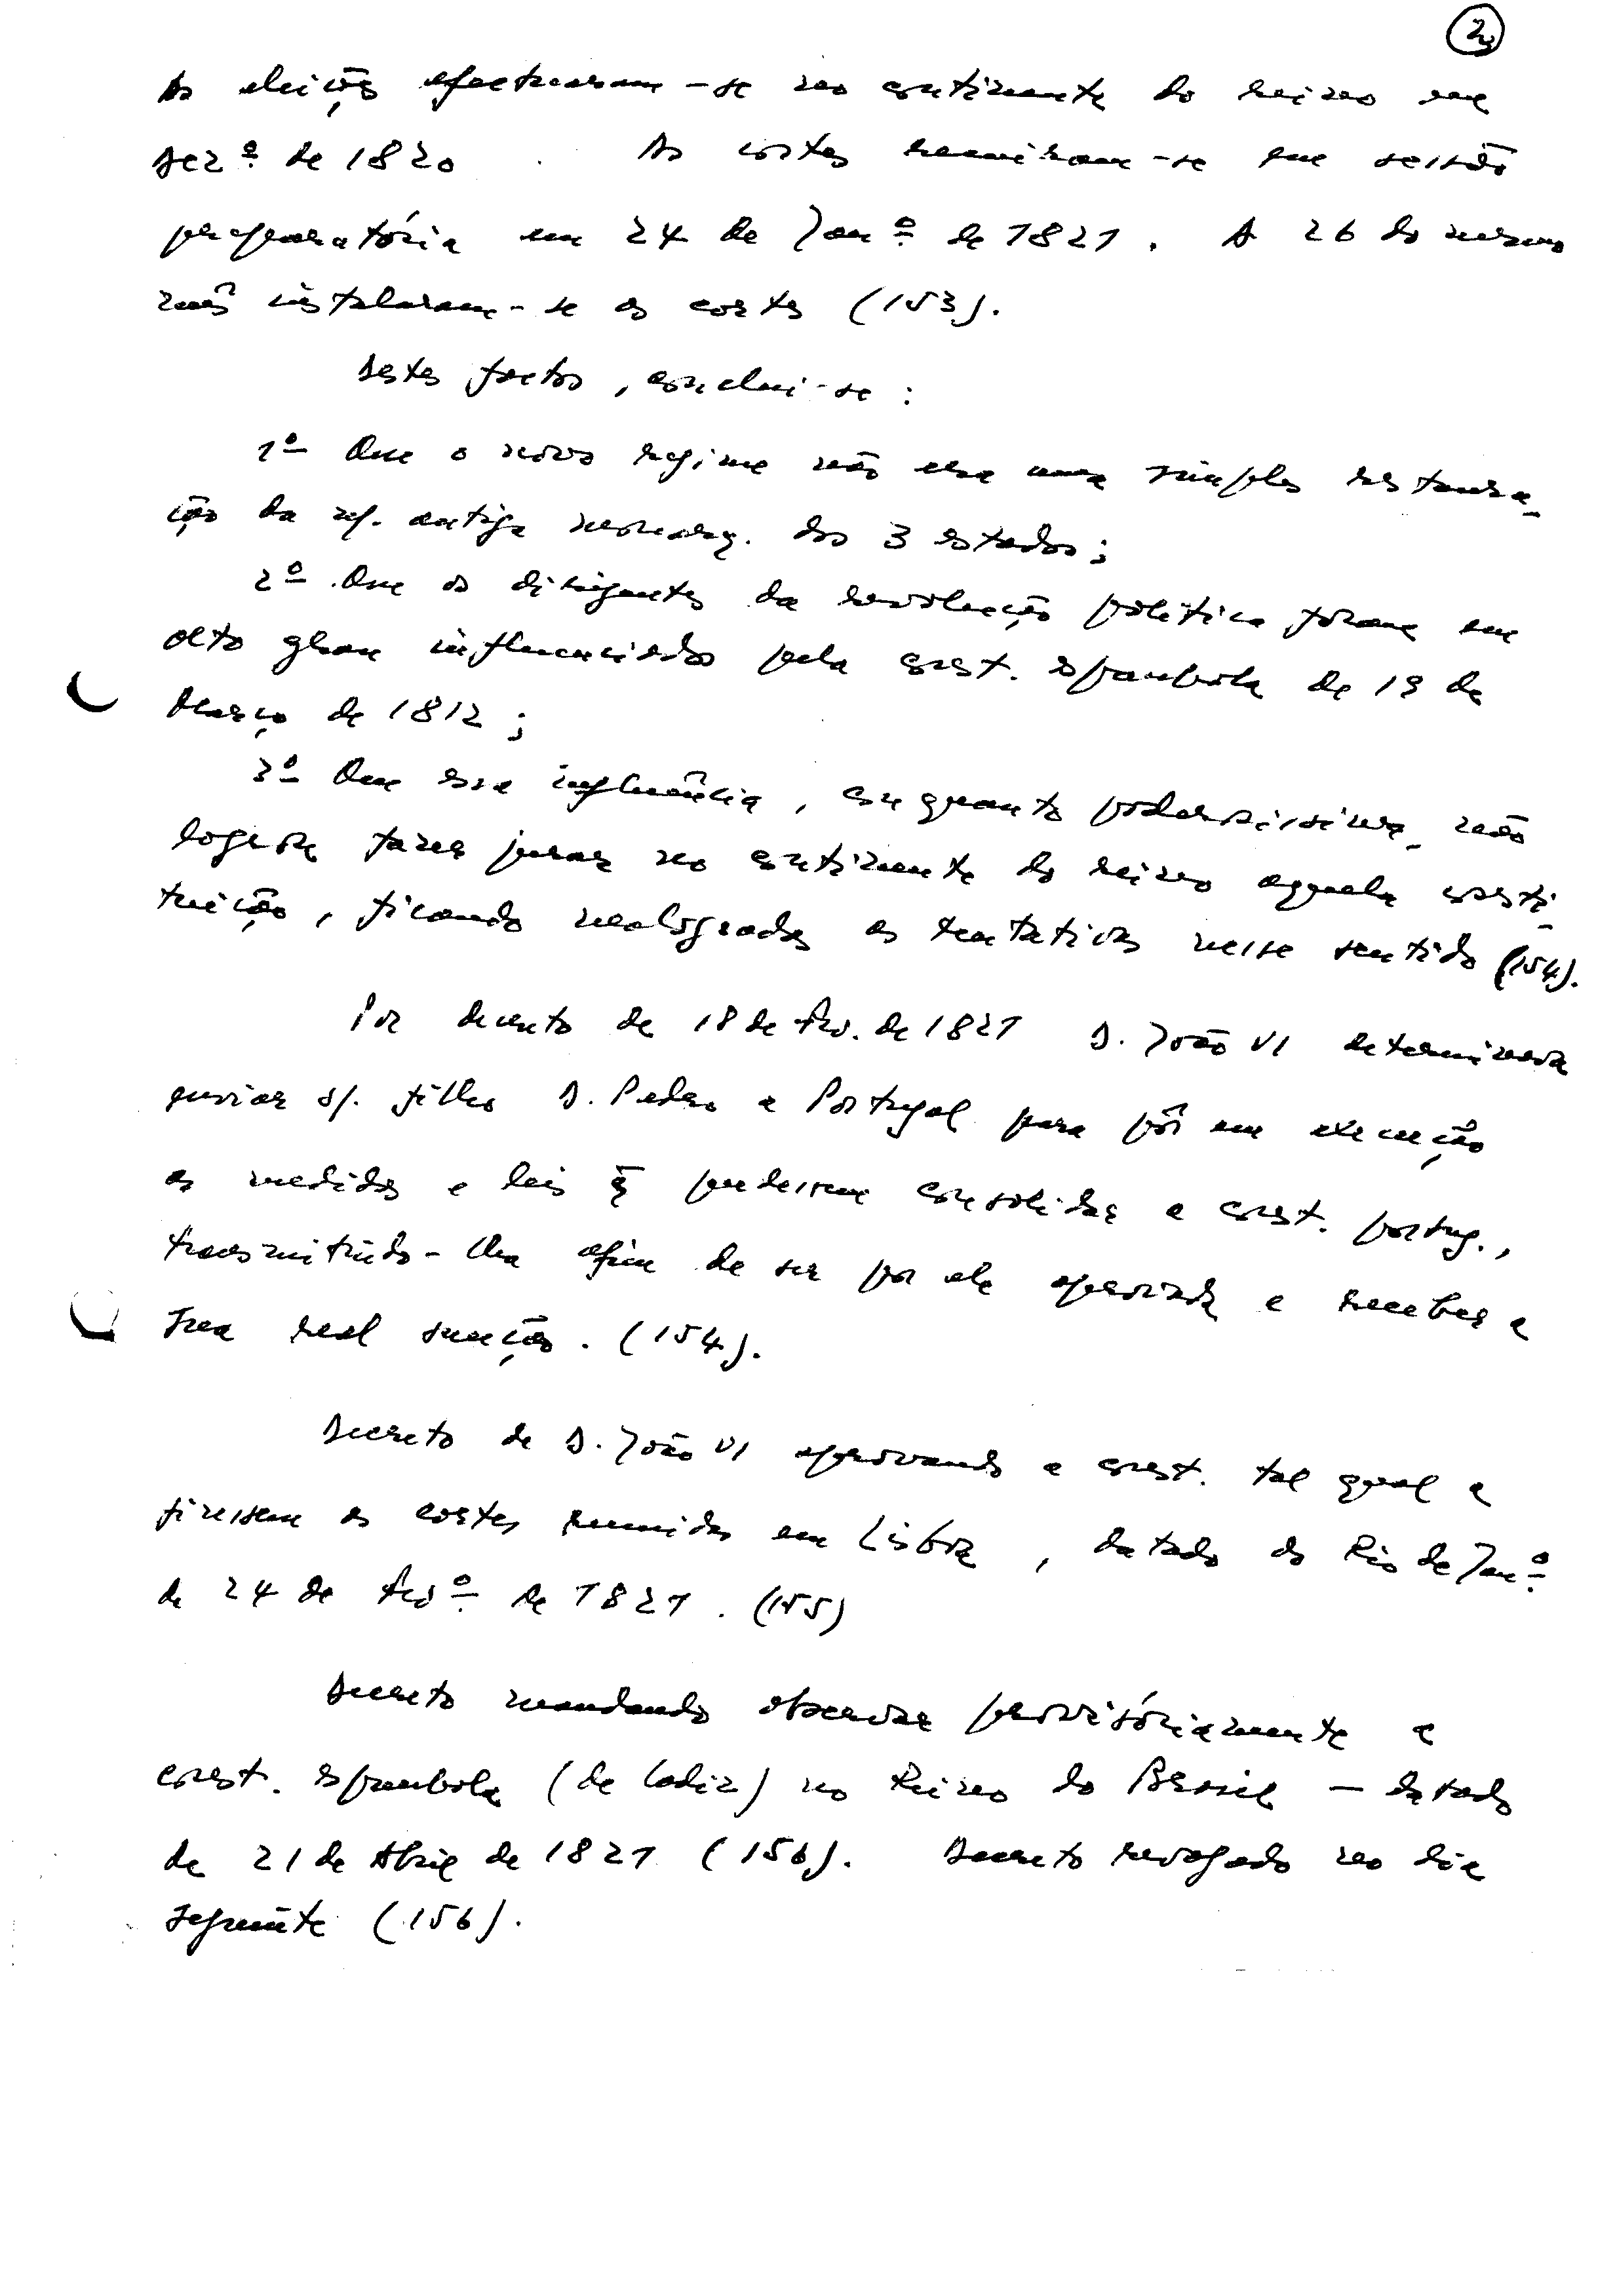 As eleições efectuaram-se no continente do reino em
Dez.º de 1820 . As cortes reuniram-se em sessão
preparatória em 24 de Jan.º de 1821. A 26 do mesmo
mês instalaram-se as cortes (153).
Destes factos, conclui-se:
1º Que o novo regime não era uma simples restaura-
ção da rep. antiga monarq. dos 3 estados;
2º Que os dirigentes da revolução política foram em
alto grau influenciados pela const. espanhola de 19 de
Março de 1812;
3º Que essa influência, conquanto poderosíssima, não
lograra fazer jurar no continente do reino aquela consti-
tuição, ficando malogradas as tentativas nesse sentido (154).
Por decreto de 18 de Fev. de 1821 D. João VI determinava
enviar s/. filho D. Pedro a Portugal para pôr em execução
as medidas e leis q̃ pudessem consolidar a const. portug.,
transmitindo-lha afim de ser por ele aprovada e receber a
sua real sanção. (154).
Decreto de D. João VI aprovando a const. tal qual a
fizessem as cortes reunidas em Lisboa, datado do Rio de Jan.º
de 24 de Fev.º de 1821. (155)
Decreto mandando observar provisóriamente a
const. espanhola (de Cadiz) no Reino do Brasil - datado
de 21 de Abril de 1821 (156). Decreto revogado no dia
seguinte (156).